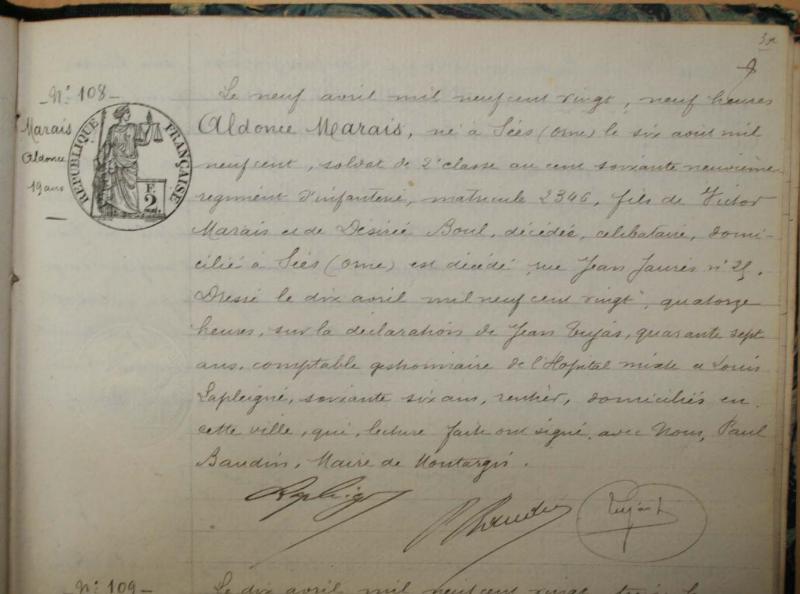 N° 108
Marais
Aldonce
19 ans
RÉPUBLIQUE FRANÇAISE
F.
2
Le neuf avril mil neuf cent vingt, neuf heures
Aldonce Marais, né à Sées (Orne) le six août mil
neuf cent, soldat de 2e classe au cent soixante neuvième
régiment d'infanterie, matricule 2346, fils de Victor
Marais et de Désirée Boul, décédée, célibataire, domi-
cilié à Sées (Orne) est décédé rue Jean Jaurès n°
Dressé le dix avril mil neuf cent vingt, quatorze
heures, sur la déclarations de Jean Tujas, quarante sept
ans, comptable gestionnaire de l'Hopital mixte et Louis
Lapleigné, soixante six ans, rentier, domiciliés en
cette ville, qui, lecture faite ont signé avec Nous, Paul
Baudin, Maire de Montargis.
N° 109
Le dix avril mil neuf cent vingt,